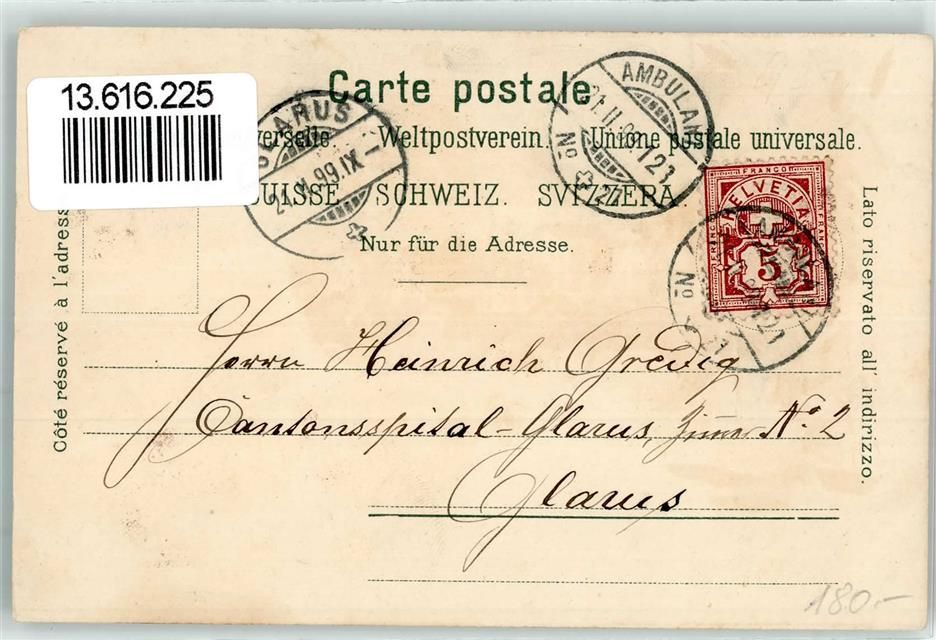 13.616.225
Carte postale
verselle. Weltpostverein. Unione postale universale.
SUISSE. SCHWEIZ. SVIZZERA.
Nur für die Adresse.
Côté réservé à l'adresse
Lato riservato all' indirizzo.
GLARUS
99.IX-
AMBULAN
No
FRANCO
HELVETIA
5
No
Herrn Heinrich Gredig
Cantonsspital-Glarus, Zimmer No. 2
Glarus
180.-